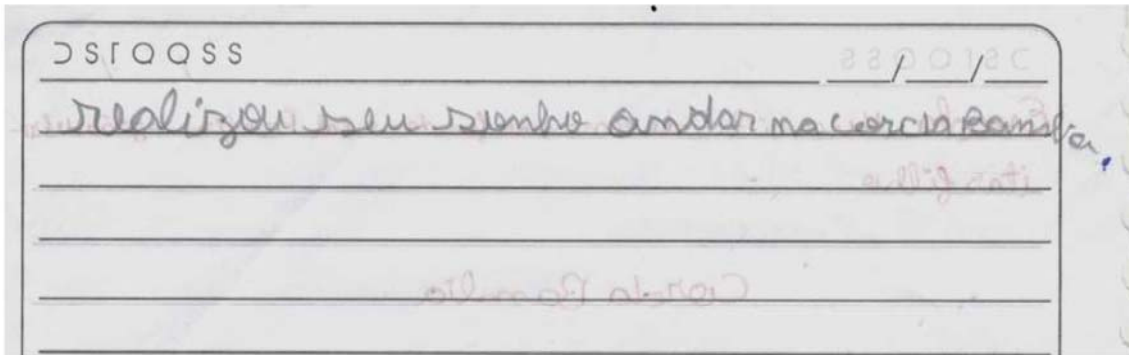 DSTQQSS __/__/__
realizou seu sonho andar na corda Bamba.